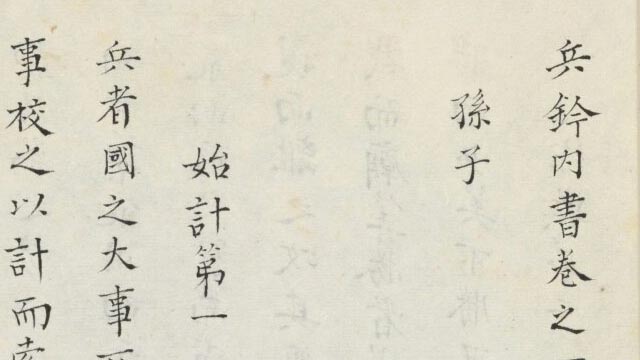 兵鈐内書卷之
孫子
始計第一
兵者國之大事
事校之以計而索